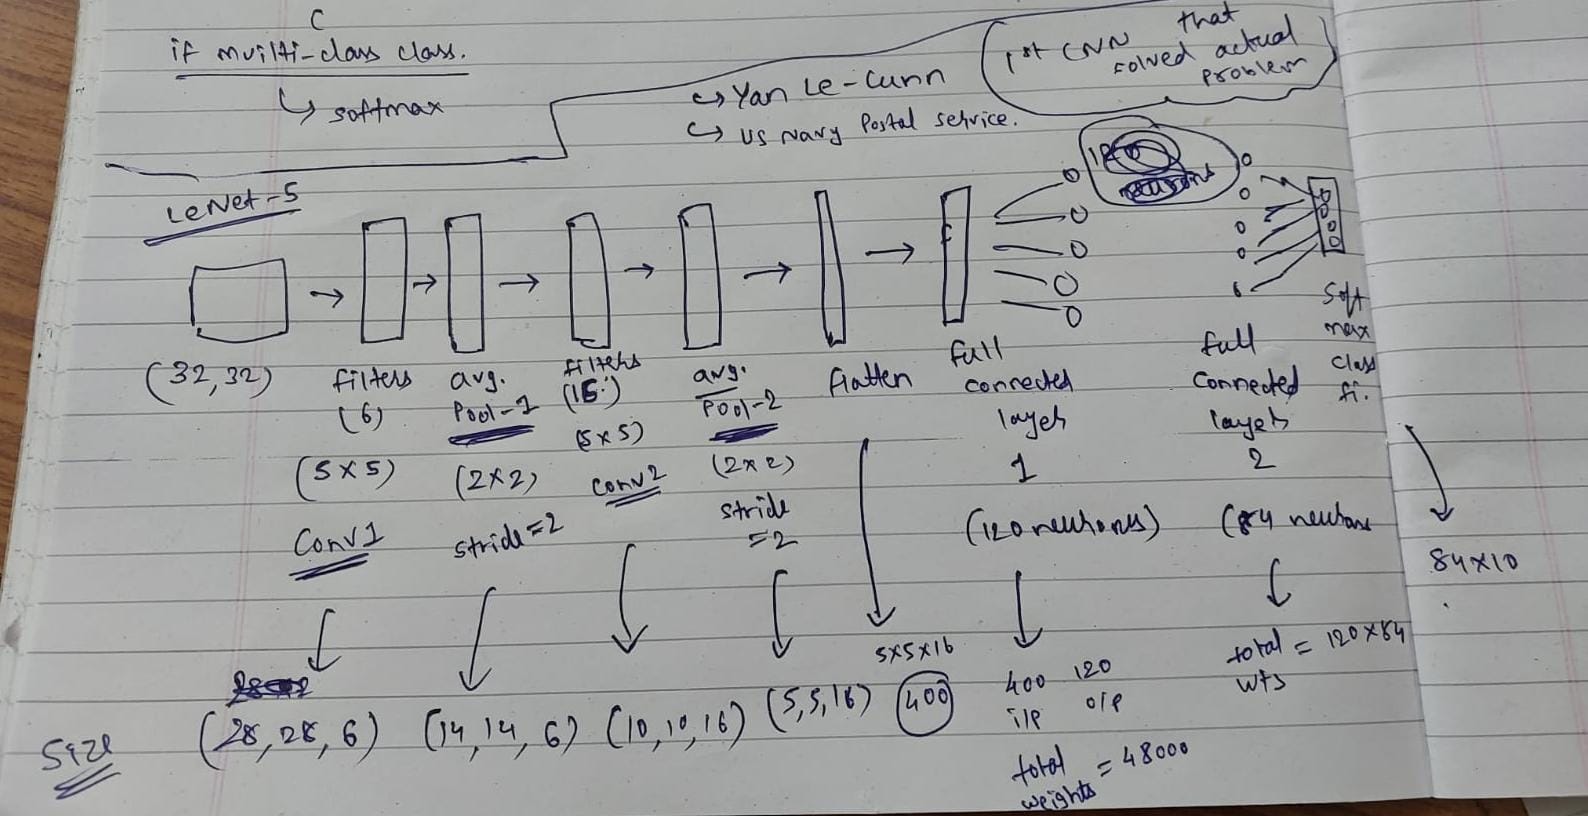 C
if muilti-class class.
↳ softmax
↳ Yan Le-Cunn
↳ US Navy Postal service.
1st CNN that
solved actual
problem
LeNet-5
120
neurons
(32,32)
filters
(6)
(5×5)
Conv1
avg.
Pool-1
(2×2)
stride=2
filters
(16)
(5×5)
conv2
avg.
Pool-2
(2×2)
stride
=2
flatten
full
connected
layer
1
(120 neurons)
full
connected
layer
2
(84 neurons
Soft
max
class
fi.
84×10
size
(28,28,6)
(14,14,6)
(10,10,16)
(5,5,16)
5×5×16
400
400 120
i/p o/p
total
weights = 48000
total = 120×84
wts